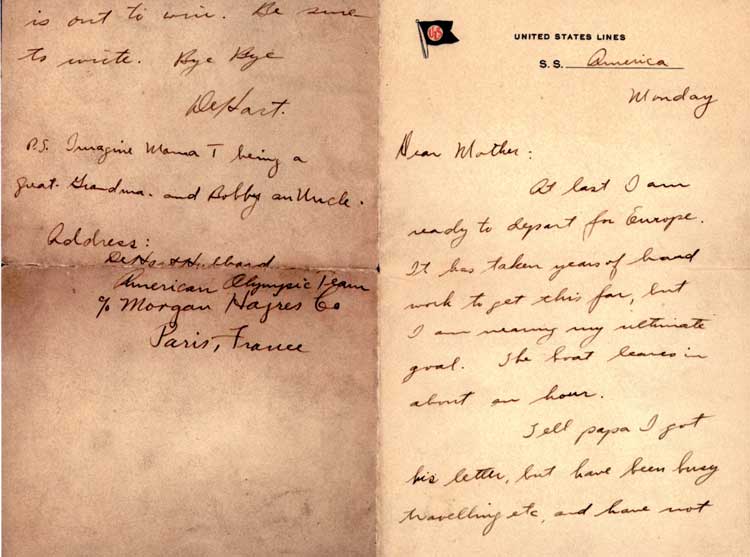 is out to win. Be sure
to write. Bye Bye
DeHart.
P.S. Imagine Mama T being a
great-Grandma. and Bobby an Uncle.
Address:
DeHart Hubbard
American Olympic Team
c/o Morgan Hajres Co
Paris, France
UNITED STATES LINES
S.S. America
Monday
Dear Mother:
At last I am
ready to depart for Europe.
It has taken years of hard
work to get this far, but
I am nearing my ultimate
goal. The boat leaves in
about an hour.
Tell papa I got
his letter, but have been busy
travelling etc, and have not